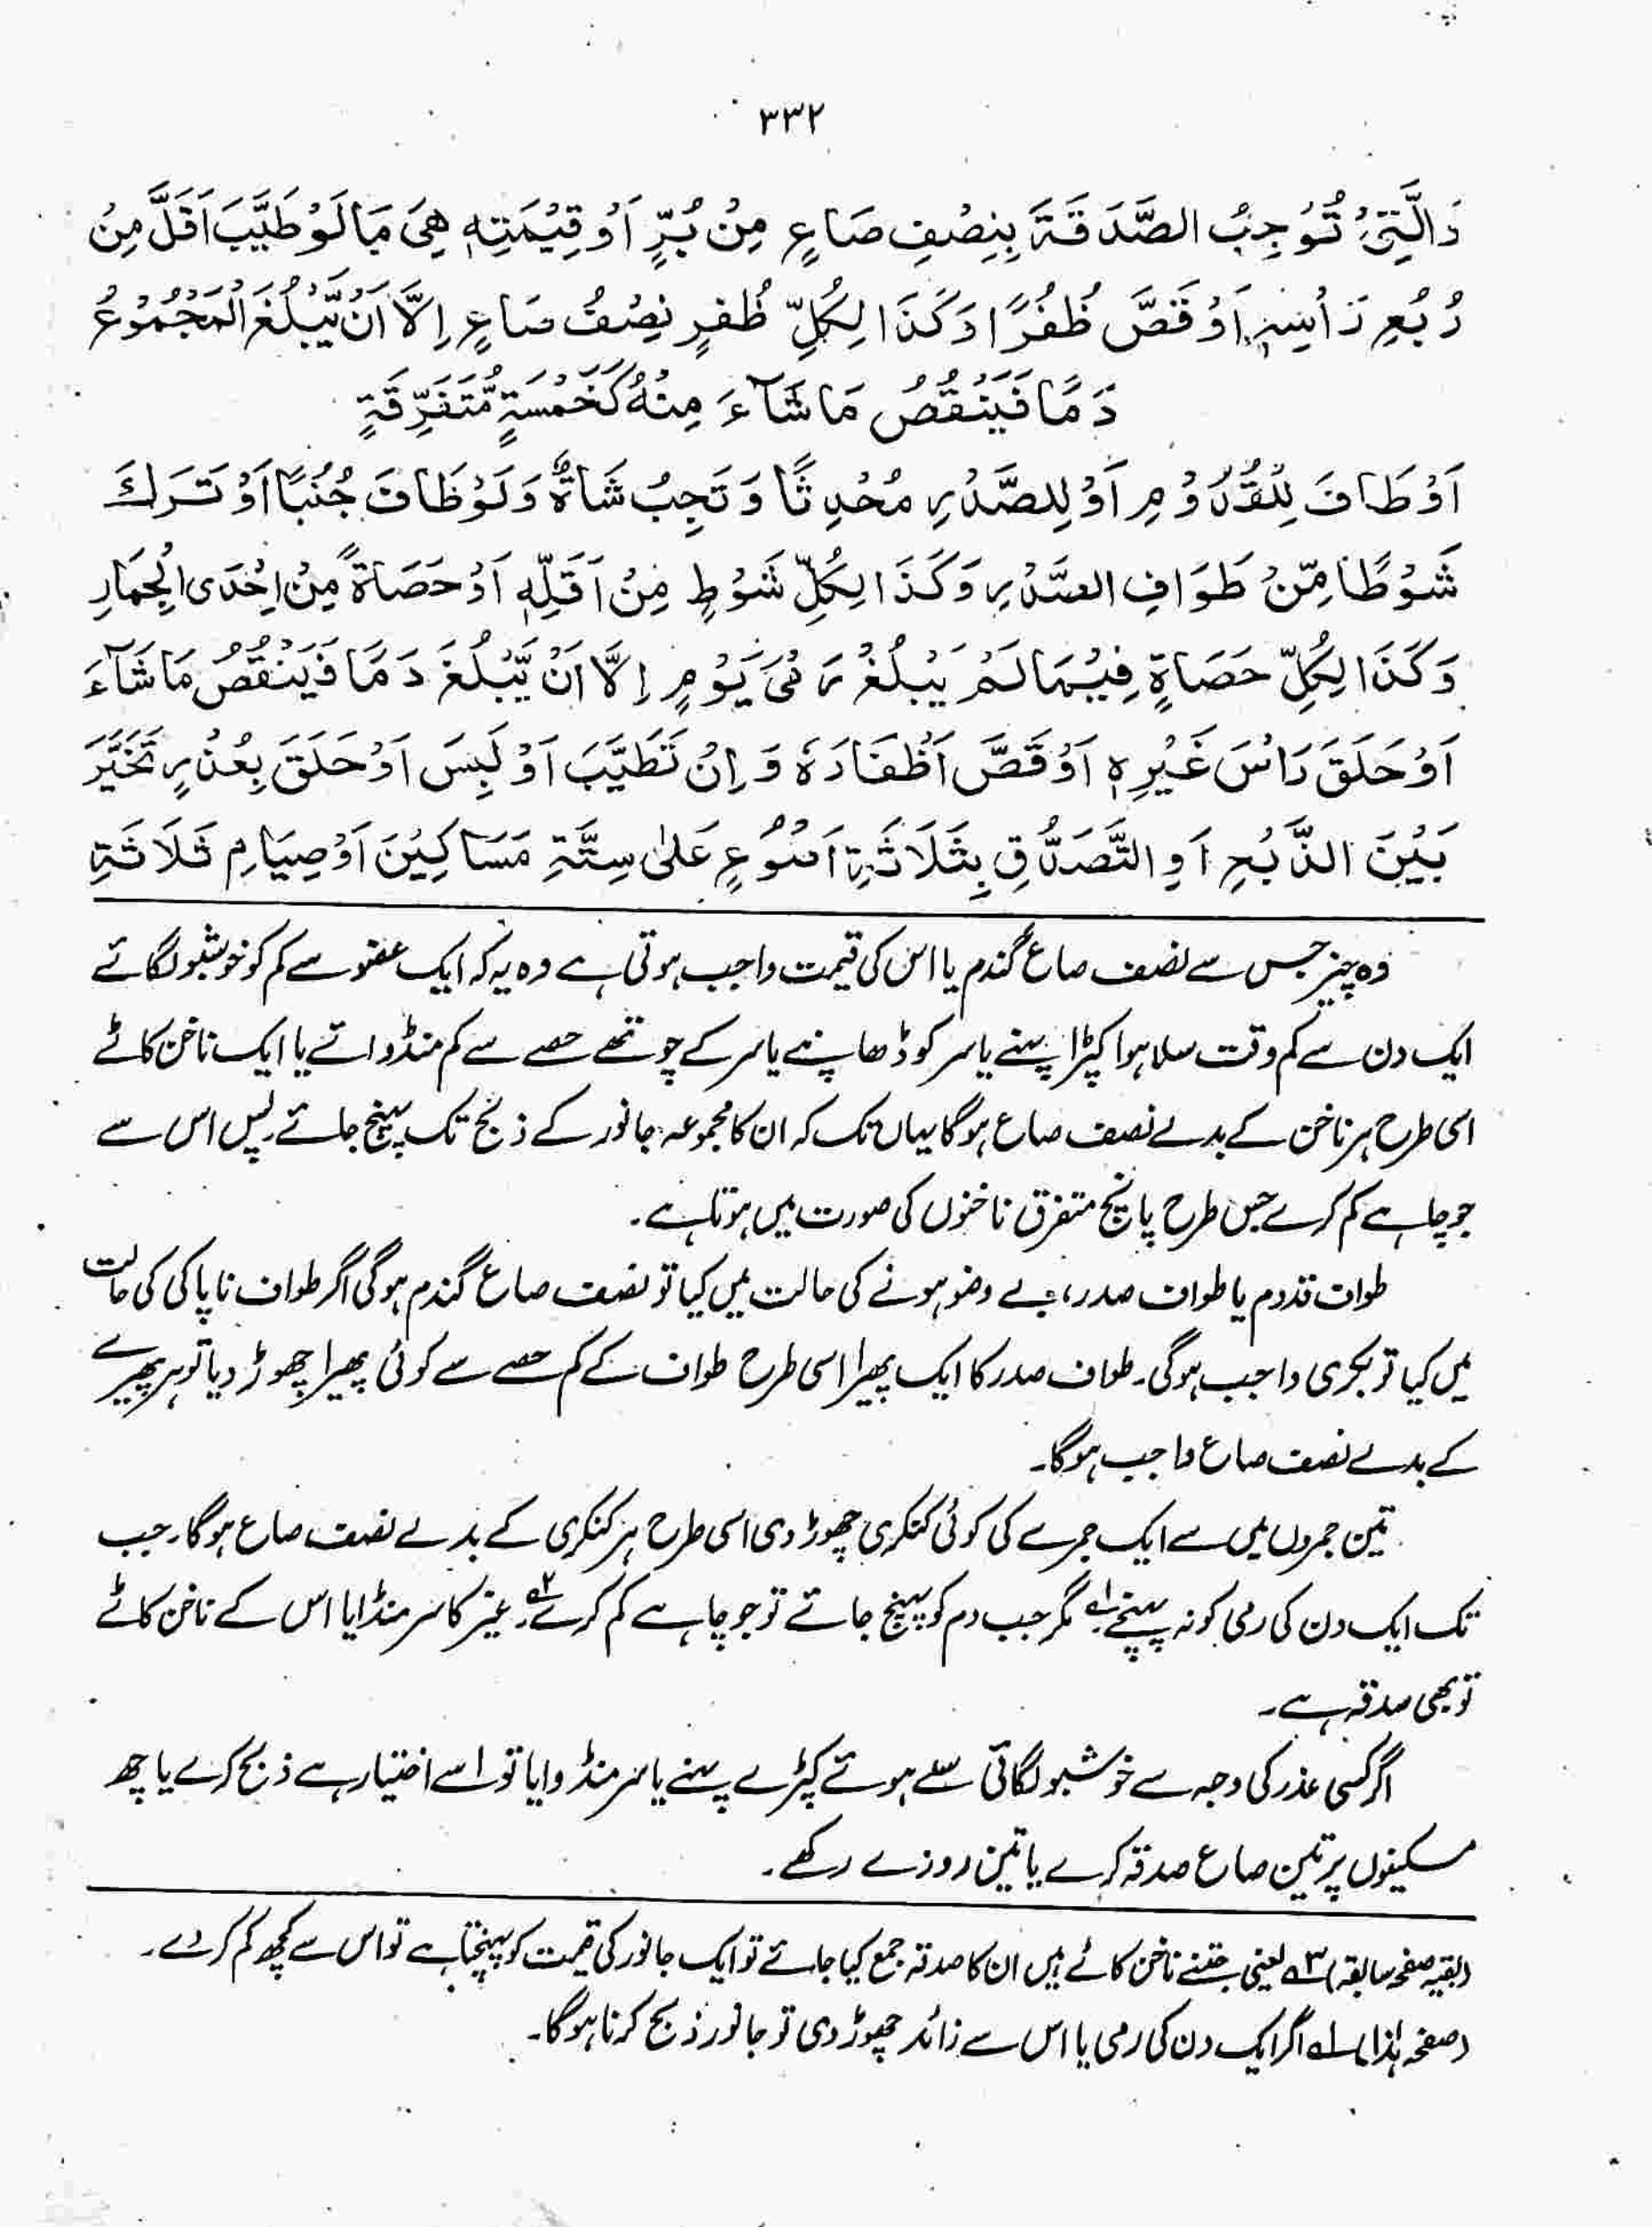 ٣٣٢
وَالَّتِیْ تُوْجِبُ الصَّدَقَةَ بِنِصْفِ صَاعٍ مِنْ بُرٍّ اَوْ قِیْمَتِهٖ هِیَ مَا لَوْ طَیَّبَ اَقَلَّ مِنْ
رُبُعِ رَأْسِهٖ اَوْ قَصَّ ظُفُرًا وَكَذَا لِكُلِّ ظُفُرٍ نِصْفُ صَاعٍ اِلَّا اَنْ یَّبْلُغَ الْمَجْمُوْعُ
دَمًا فَیَنْقُصُ مَا شَآءَ مِنْهُ كَخَمْسَةٍ مُّتَفَرِّقَةٍ
اَوْ طَافَ لِلْقُدُوْمِ اَوْ لِلصَّدْرِ مُحْدِثًا وَ تَجِبُ شَاةٌ وَلَوْ طَافَ جُنُبًا اَوْ تَرَكَ
شَوْطًا مِّنْ طَوَافِ الصَّدْرِ وَكَذَا لِكُلِّ شَوْطٍ مِنْ اَقَلِّهٖ اَوْ حَصَاةً مِنْ اِحْدَی الْجِمَارِ
وَكَذَا لِكُلِّ حَصَاةٍ فِیْمَا لَمْ یَبْلُغْ رَمْیَ یَوْمٍ اِلَّا اَنْ یَّبْلُغَ دَمًا فَیَنْقُصُ مَا شَآءَ
اَوْ حَلَقَ رَاْسَ غَیْرِهٖ اَوْ قَصَّ اَظْفَارَهٗ وَ اِنْ تَطَیَّبَ اَوْ لَبِسَ اَوْ حَلَقَ بِعُذْرٍ تَخَیَّرَ
بَیْنَ الذَّبْحِ اَوِ التَّصَدُّقِ بِثَلَاثَةِ اَصْوُعٍ عَلٰی سِتَّةِ مَسَاكِیْنَ اَوْ صِیَامِ ثَلَاثَةِ
وہ چیز جس سے نصف صاع گندم یا اس کی قیمت واجب ہوتی ہے وہ یہ کہ ایک عضو سے کم کو خوشبو لگائے
ایک دن سے کم وقت سلا ہوا کپڑا پہنے یا سر کو ڈھانپے یا سر کے چوتھے حصے سے کم منڈوائے یا ایک ناخن کاٹے
اسی طرح ہر ناخن کے بدلے نصف صاع ہوگا یہاں تک کہ ان کا مجموعہ جانور کے ذبح تک پہنچ جائے پس اس سے
جو چاہے کم کرے جس طرح پانچ متفرق ناخنوں کی صورت میں ہوتا ہے۔
طواف قدوم یا طواف صدر، بے وضو ہونے کی حالت میں کیا تو نصف صاع گندم ہوگی اگر طواف ناپاکی کی حالت
میں کیا تو بکری واجب ہوگی۔ طواف صدر کا ایک پھیرا اسی طرح طواف کے کم حصے سے کوئی پھیرا چھوڑ دیا تو ہر پھیرے
کے بدلے نصف صاع واجب ہوگا۔
تین جمروں میں سے ایک جمرے کی کوئی کنکری چھوڑ دی اسی طرح ہر کنکری کے بدلے نصف صاع ہوگا۔ جب
تک ایک دن کی رمی کو نہ پہنچے۱؎ مگر جب دم کو پہنچ جائے تو جو چاہے کم کرے۲؎۔ غیر کا سر منڈایا اس کے ناخن کاٹے
تو بھی صدقہ ہے۔
اگر کسی عذر کی وجہ سے خوشبو لگائی سلے ہوئے کپڑے پہنے یا سر منڈوایا تو اسے اختیار ہے ذبح کرے یا چھ
مسکینوں پر تین صاع صدقہ کرے یا تین روزے رکھے۔
(بقیہ صفحہ سابقہ) ۳؎ یعنی جتنے ناخن کاٹے ہیں ان کا صدقہ جمع کیا جائے تو ایک جانور کی قیمت کو پہنچتا ہے تو اس سے کچھ کم کر دے۔
(صفحہ ہذا) ۱؎ اگر ایک دن کی رمی یا اس سے زائد چھوڑ دی تو جانور ذبح کرنا ہوگا۔